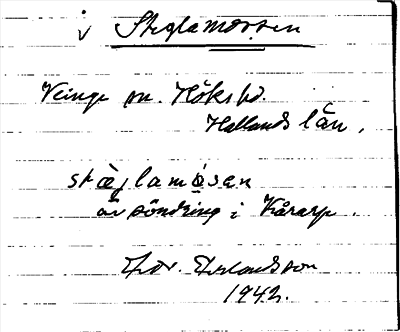 i Steglamossen
Veinge sn. Höks hd.
Hallands län.
stæ̀glamósen
är söndring i Kårarp.
Erlandsson
1942.